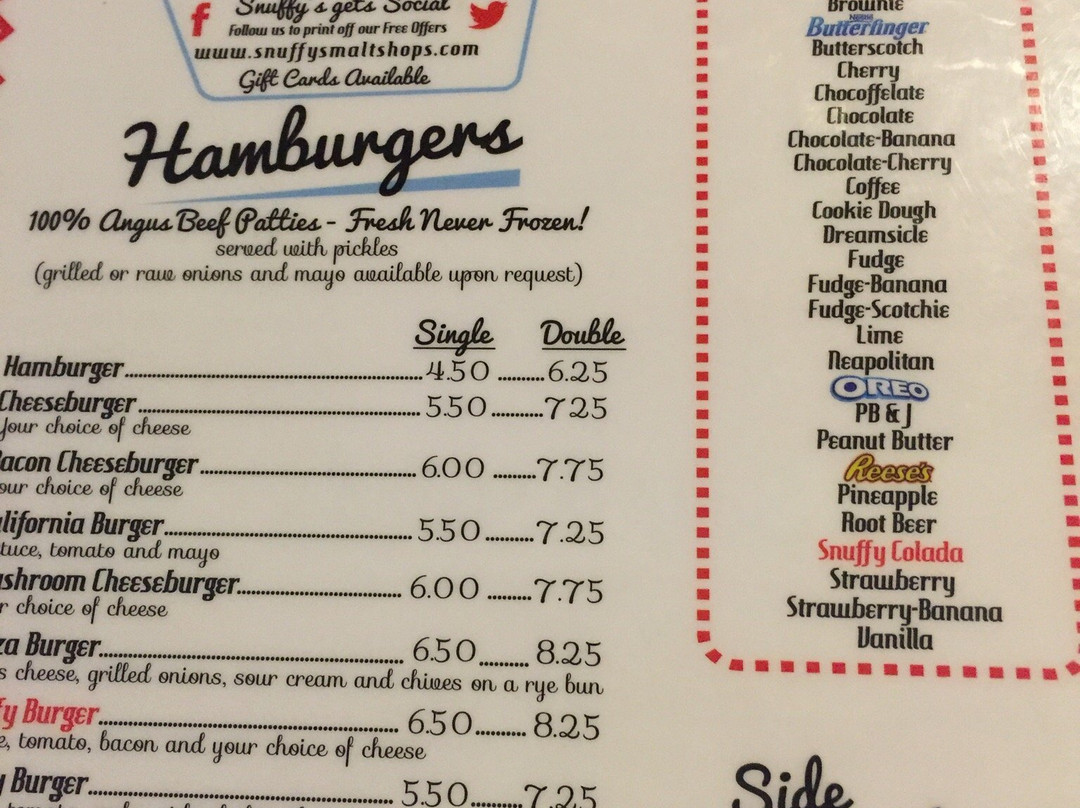 Snuffy's gets Social
Follow us to print off our Free Offers
www.snuffysmaltshops.com
Gift Cards Available
Hamburgers
100% Angus Beef Patties - Fresh Never Frozen!
served with pickles
(grilled or raw onions and mayo available upon request)
Single Double
Hamburger 4.50 6.25
Cheeseburger 5.50 7 25
Your choice of cheese
acon Cheeseburger 6.00 7.75
our choice of cheese
lifornia Burger 5.50 7.25
tuce, tomato and mayo
shroom Cheeseburger 6.00 7.75
r choice of cheese
za Burger 6.50 8.25
s cheese, grilled onions, sour cream and chives on a rye bun
fy Burger 6.50 8.25
e, tomato, bacon and your choice of cheese
y Burger 5.50 7.25
Brownie
Nestle Butterfinger
Butterscotch
Cherry
Chocoffelate
Chocolate
Chocolate-Banana
Chocolate-Cherry
Coffee
Cookie Dough
Dreamsicle
Fudge
Fudge-Banana
Fudge-Scotchie
Lime
Neapolitan
OREO
PB & J
Peanut Butter
Reese's
Pineapple
Root Beer
Snuffy Colada
Strawberry
Strawberry-Banana
Vanilla
Side